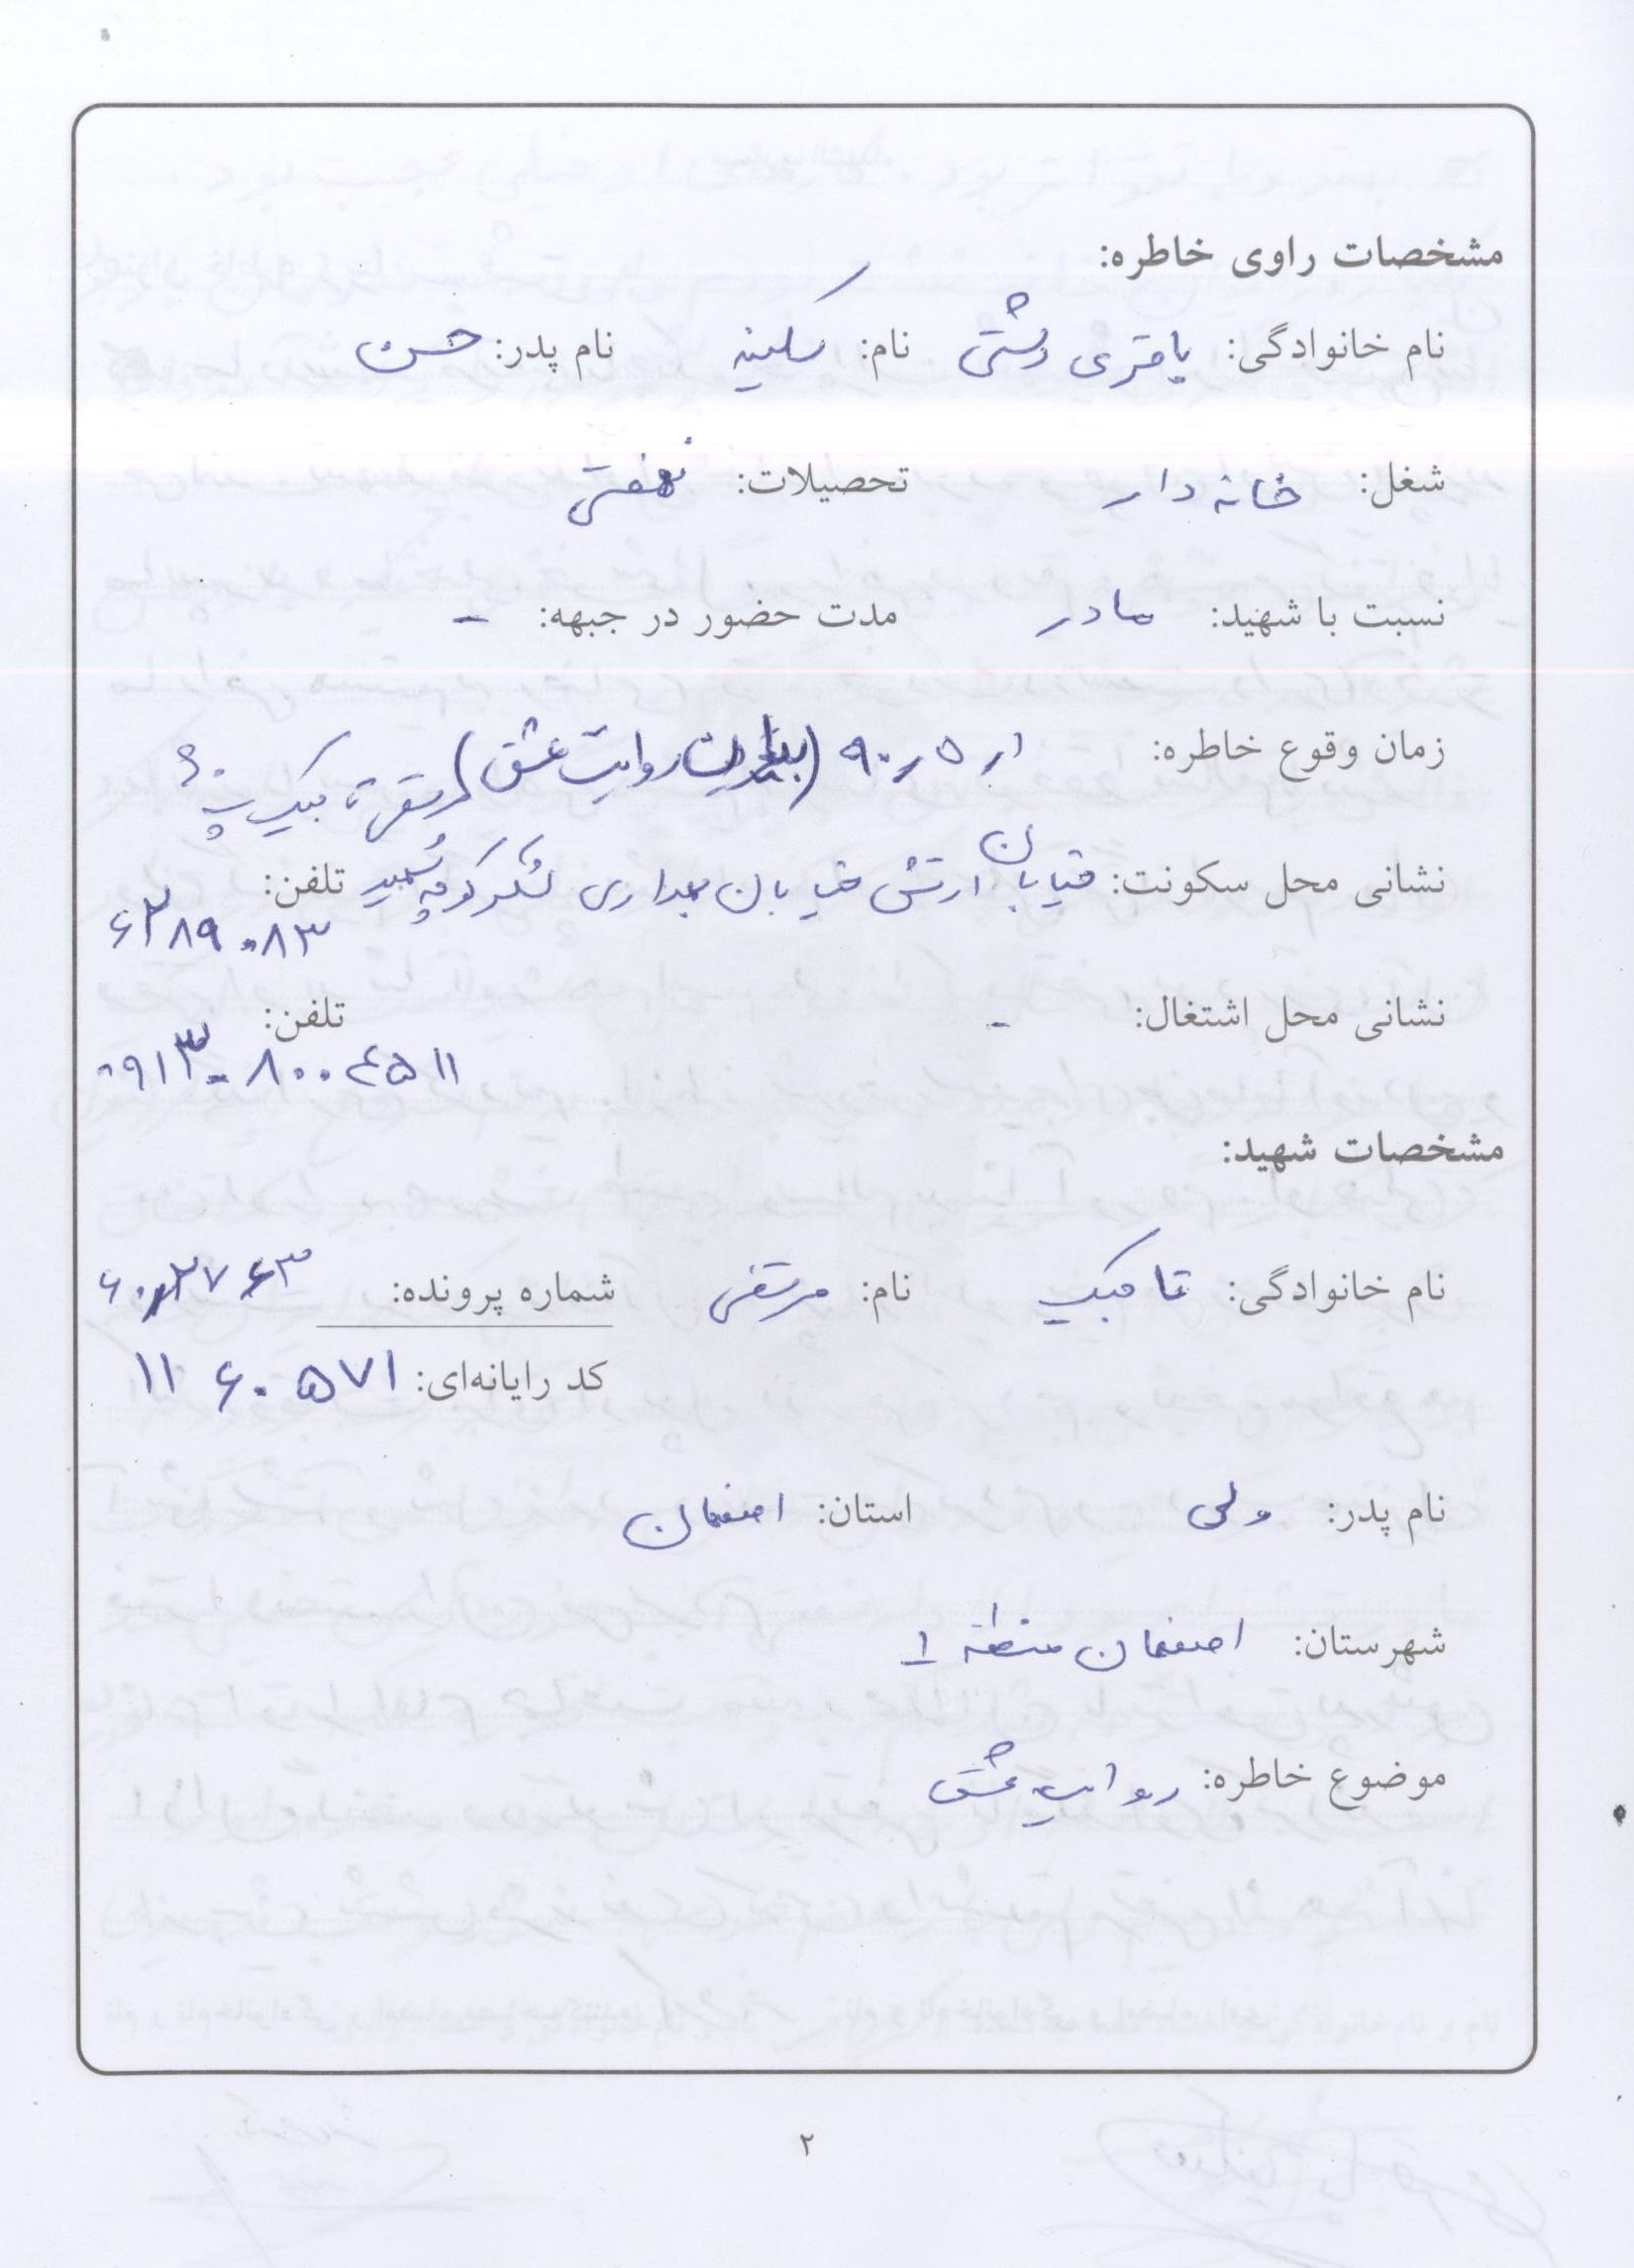 مشخصات راوی خاطره:
نام خانوادگی: باقری دشتی نام: سکینه نام پدر: حسن
شغل: خانه دار تحصیلات: نهضتی
نسبت با شهید: مادر مدت حضور در جبهه: -
زمان وقوع خاطره: ۹۰٫۵٫۱ (روایت عشق)
نشانی محل سکونت: خیابان ارتش خیابان بهداری لشکر کوچه شهید تلفن:
مرتضی تامبیک پ ۶۰
۶۳۸۹۰۸۳
نشانی محل اشتغال: - تلفن:
۰۹۱۳۰۸۰۰۴۵۱۱
مشخصات شهید:
نام خانوادگی: تامبیک نام: مرتضی شماره پرونده:
کد رایانه‌ای: ۱۱۶۰۵۷۱
نام پدر: ولی استان: اصفهان
شهرستان: اصفهان منطقه ۱
موضوع خاطره: روایت عشق
۲